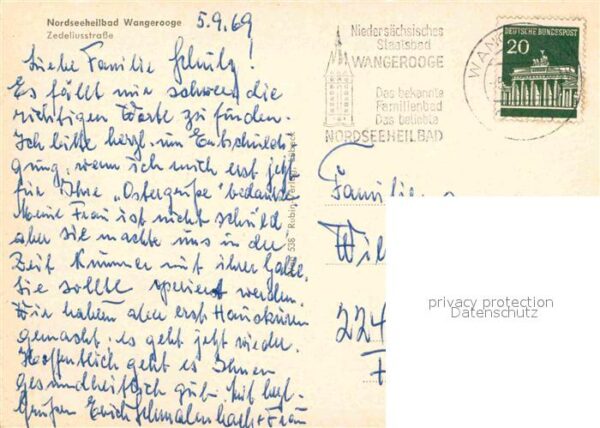 Nordseeheilbad Wangerooge
Zedeliusstraße
5.9.69
Liebe Familie Schulz!
Es fällt mir schwer, die
richtigen Worte zu finden.
Ich bitte herzl. um Entschuldi
gung, wenn ich mich erst jetzt
für Ihre „Ostergrüße" bedanke.
Meine Frau ist nicht schuld
aber sie machte uns in der
Zeit Kummer mit ihrer Galle.
Sie sollte operiert werden.
Wir haben aber erst Hauskuren
gemacht; es geht jetzt wieder.
Hoffentlich geht es Ihnen
gesundheitlich gut. Mit herzl.
Grüßen Erich Schmalenbach + Frau
538
Niedersächsisches
Staatsbad
WANGEROOGE
Das bekannte
Familienbad
Das beliebte
NORDSEEHEILBAD
WANG
DEUTSCHE BUNDESPOST
20
Familie
Wil
224
privacy protection
Datenschutz